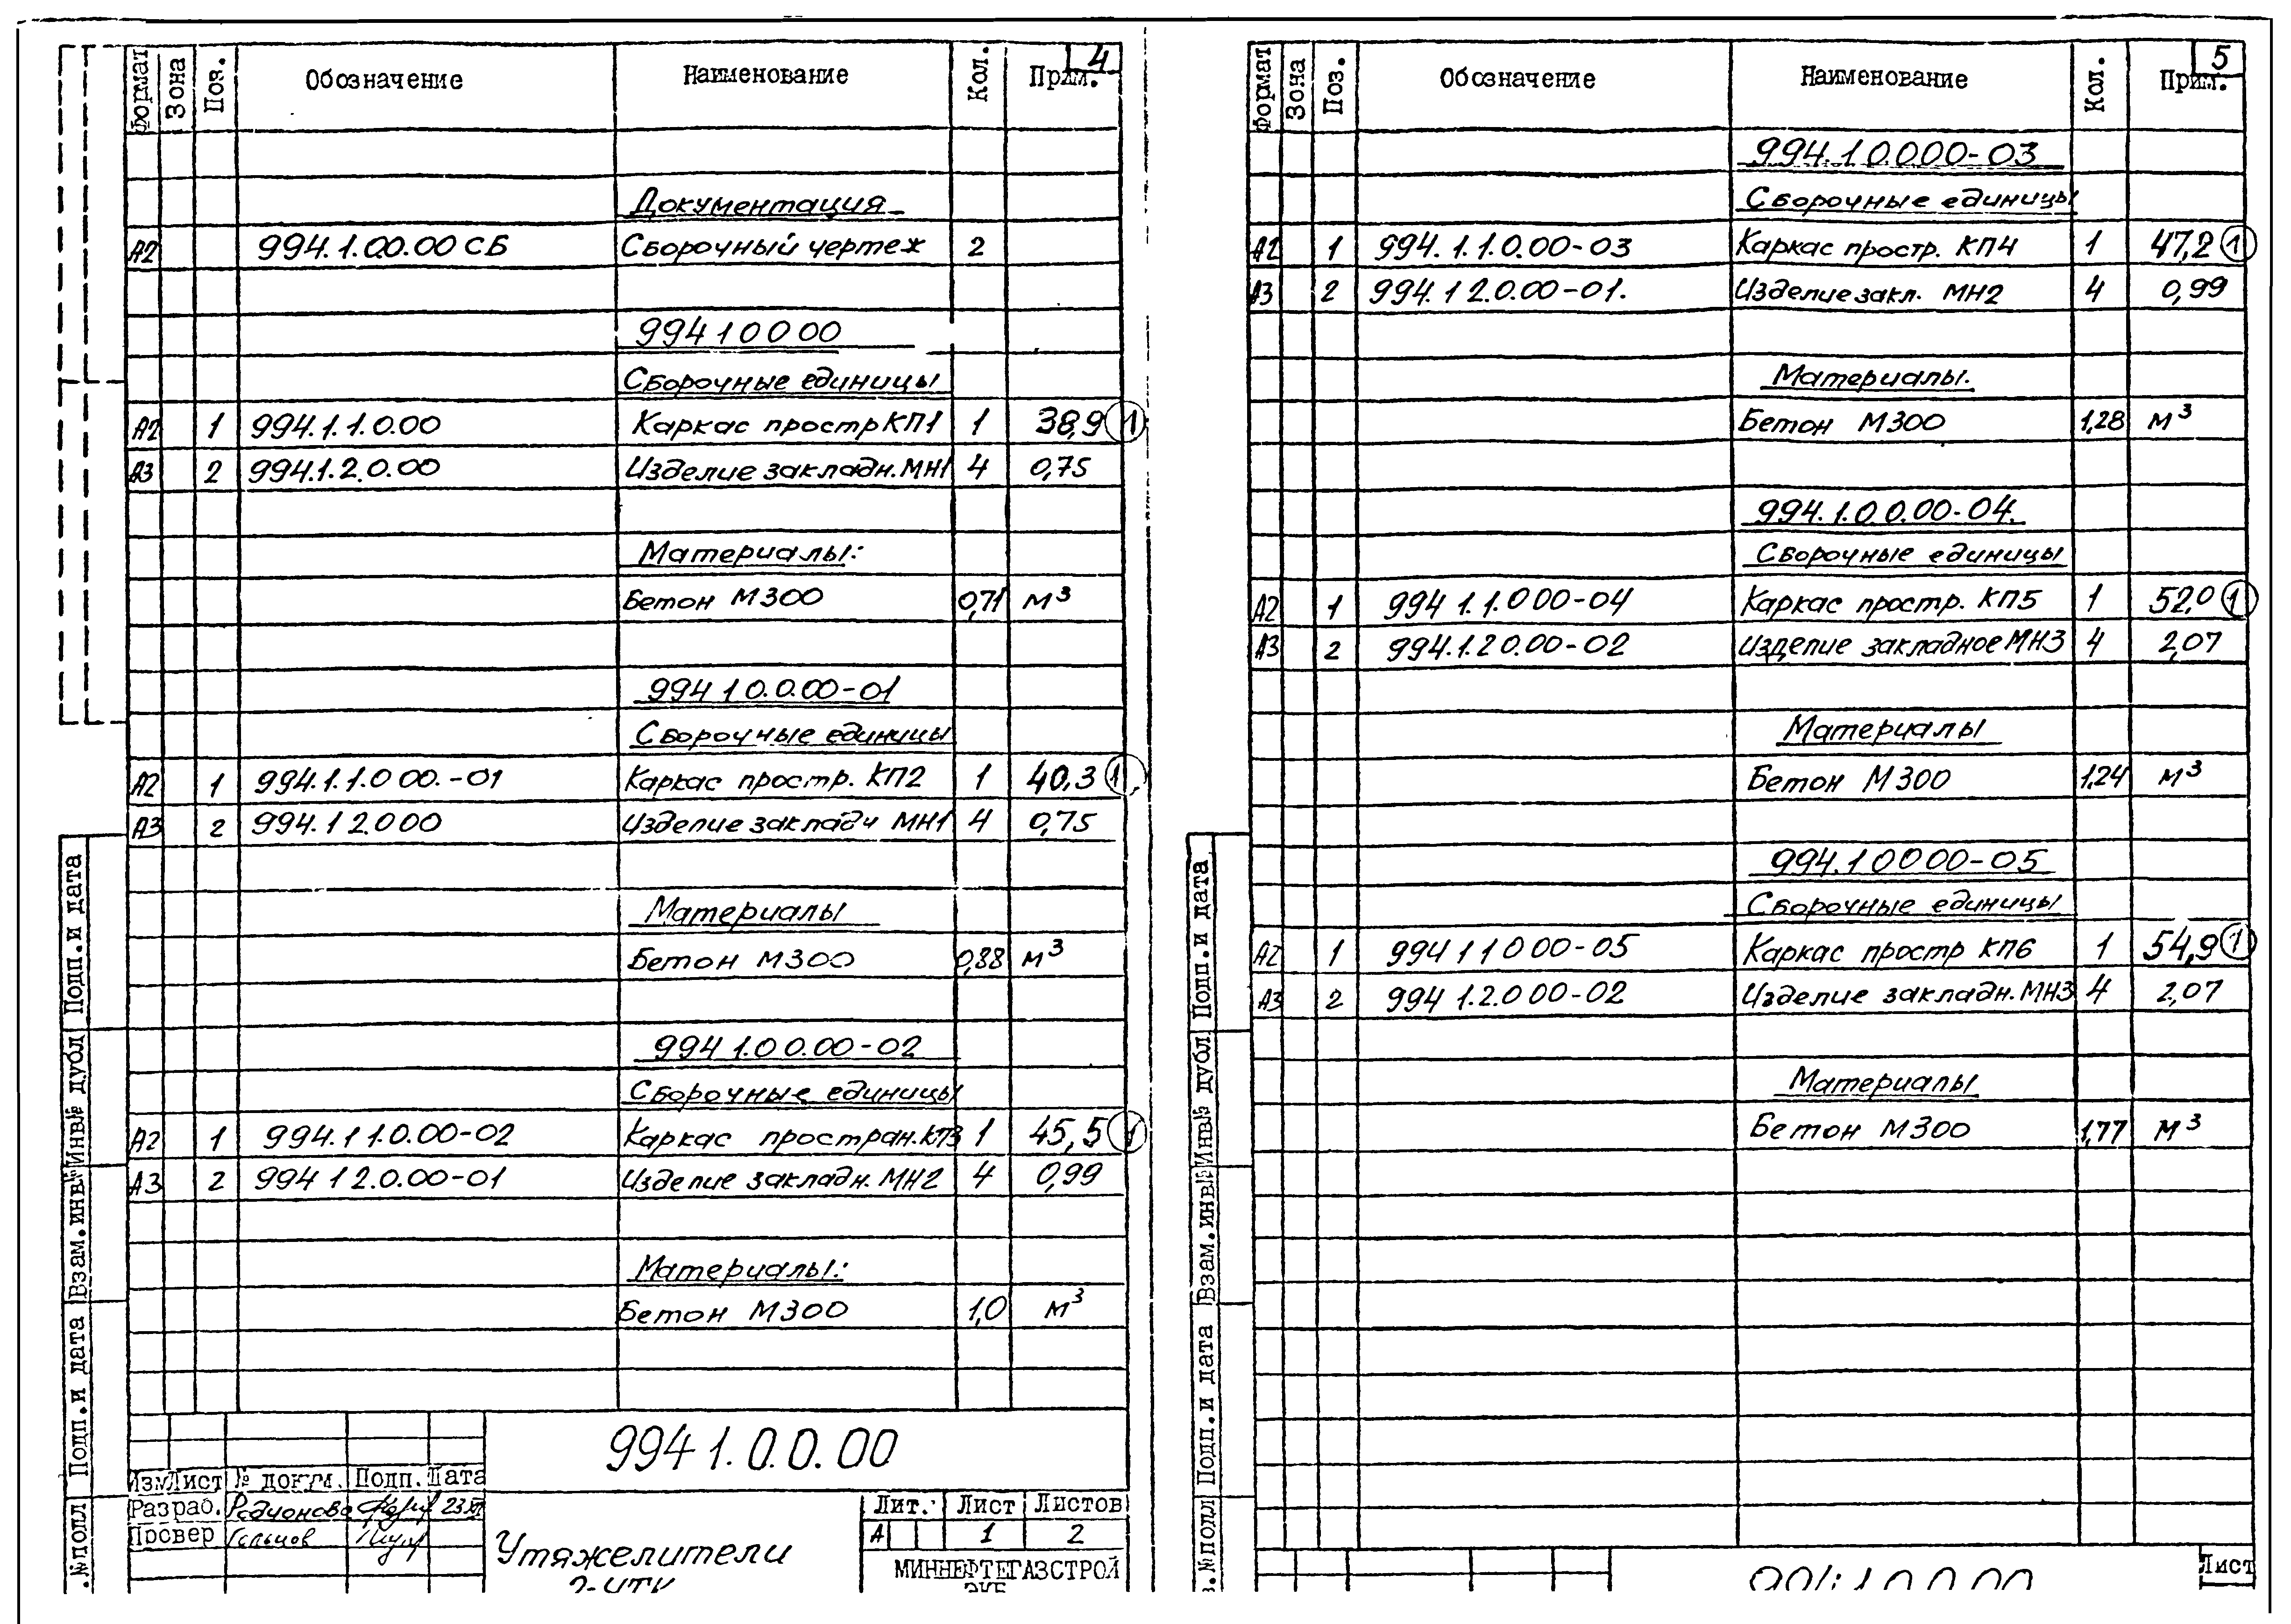 4
Формат Зона Поз. Обозначение Наименование Кол. Прим.
Документация
А2 994.1.00.00 СБ Сборочный чертеж 2
994 1 0 0 00
Сборочные единицы
А2 1 994.1.1.0.00 Каркас простр КП1 1 38,9 1
А3 2 994.1.2.0.00 Изделие закладн. МН1 4 0,75
Материалы:
Бетон М300 0,71 м³
994 1 0.0.00-01
Сборочные единицы
А2 1 994.1.1.0 00.-01 Каркас простр. КП2 1 40,3 1
А3 2 994.1 2.000 Изделие закладн МН1 4 0,75
Материалы
Бетон М300 0,88 м³
994 1.0 0.00-02
Сборочные единицы
А2 1 994.1 1.0.00-02 Каркас простран. КП3 1 45,5 1
А3 2 994 1 2.0.00-01 Изделие закладн. МН2 4 0,99
Материалы:
Бетон М300 1,0 м³
994 1.0.0.00
Изм Лист № докум. Подп. Дата
Разраб. Родионова
Провер Гольцов
Утяжелители
2-УТК
Лит. Лист Листов
А 1 2
МИННЕФТЕГАЗСТРОЙ
ЭКБ
Подп. и дата
Инв№ дубл
Взам.инв№
Подп. и дата
№ подл
5
Формат Зона Поз. Обозначение Наименование Кол. Прим.
994.1 0.000-03
Сборочные единицы
А2 1 994.1.1.0.00-03 Каркас простр. КП4 1 47,2 1
А3 2 994.1 2.0.00-01. Изделие закл. МН2 4 0,99
Материалы.
Бетон М300 1,28 м³
994.1.0 0.00-04.
Сборочные единицы
А2 1 994 1.1.0 00-04 Каркас простр. КП5 1 52,0 1
А3 2 994.1.2 0.00-02 Изделие закладное МН3 4 2,07
Материалы
Бетон М300 1,24 м³
994.1 0 0 00-05
Сборочные единицы
А2 1 994 1 1 0 00-05 Каркас простр КП6 1 54,9 1
А3 2 994 1.2.0 00-02 Изделие закладн. МН3 4 2,07
Материалы
Бетон М300 1,77 м³
Лист
Подп. и дата
Инв№ дубл
Взам.инв№
Подп. и дата
в.№ подл